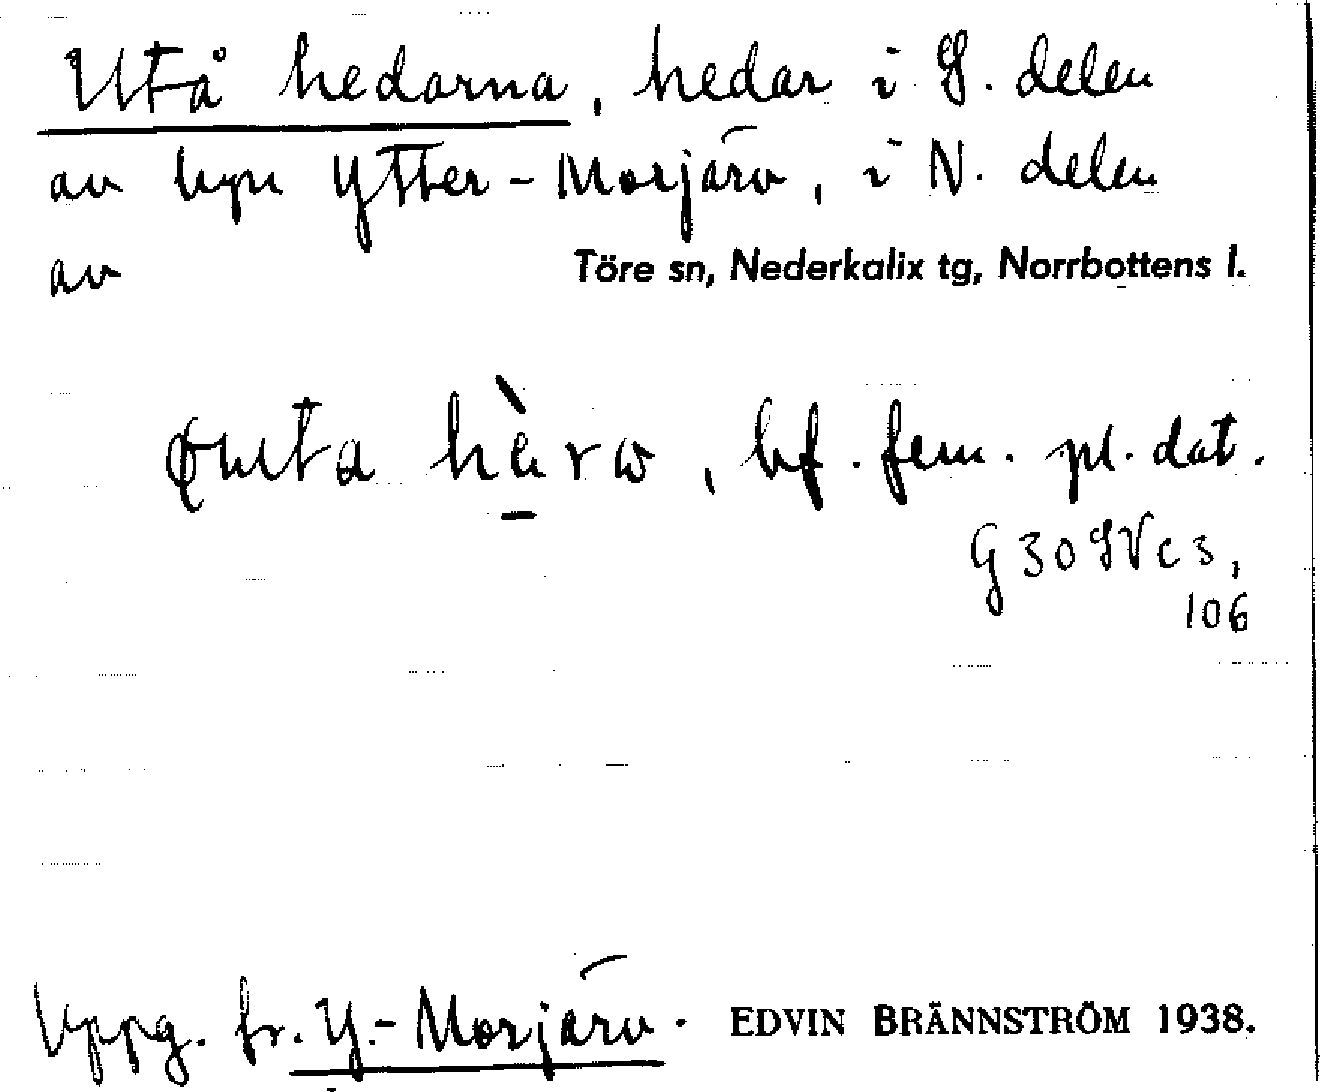 Utå hedarna, hedar i S. delen
av byn Ytter-Morjärv, i N. delen
av Töre sn, Nederkalix tg, Norrbottens l.
, bf. fem. pl. dat.
G 30 SV c 3,
106
Uppg. fr. Y.-Morjärv. EDVIN BRÄNNSTRÖM 1938.